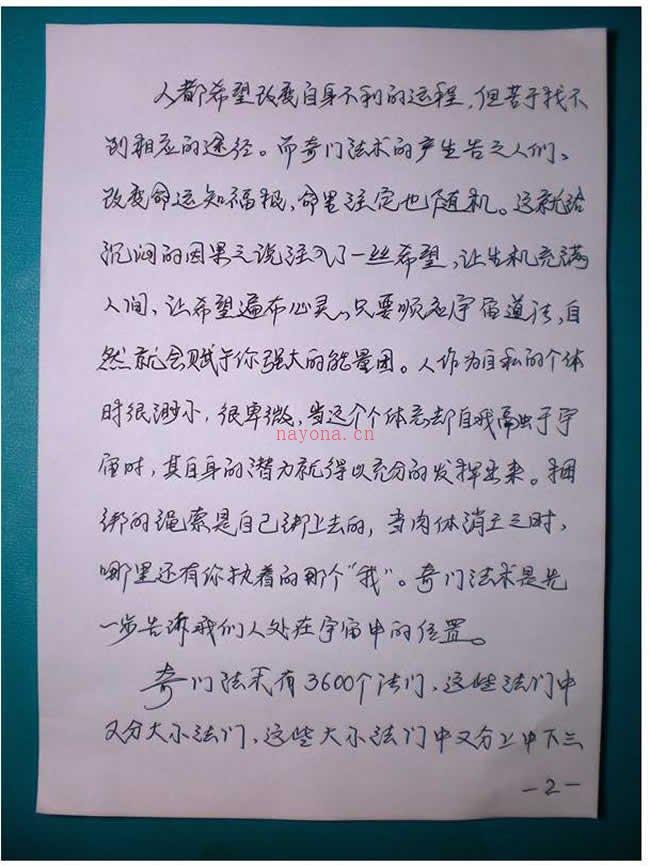 人都希望改变自身不利的运程，但苦于找不
到相应的途径。而奇门法术的产生告之人们、
改变命运知福根，命里注定也随机。这就给
沉闷的因果之说注入了一丝希望，让生机充满
人间、让希望遍布心灵。只要顺应宇宙道法，自
然就会赋予你强大的能量团。人作为自私的个体
时很渺小，很卑微，当这个个体忘却自我融虫于宇
宙时，其自身的潜力就得以充分的发挥出来。捆
绑的绳索是自己绑上去的，当肉体消亡之时，
哪里还有你执着的那个“我”。奇门法术是先
一步告诉我们人处在宇宙中的位置。
奇门法术有3600个法门、这些法门中
又分大小法门、这些大小法门中又分上中下三
-2-
nayona.cn